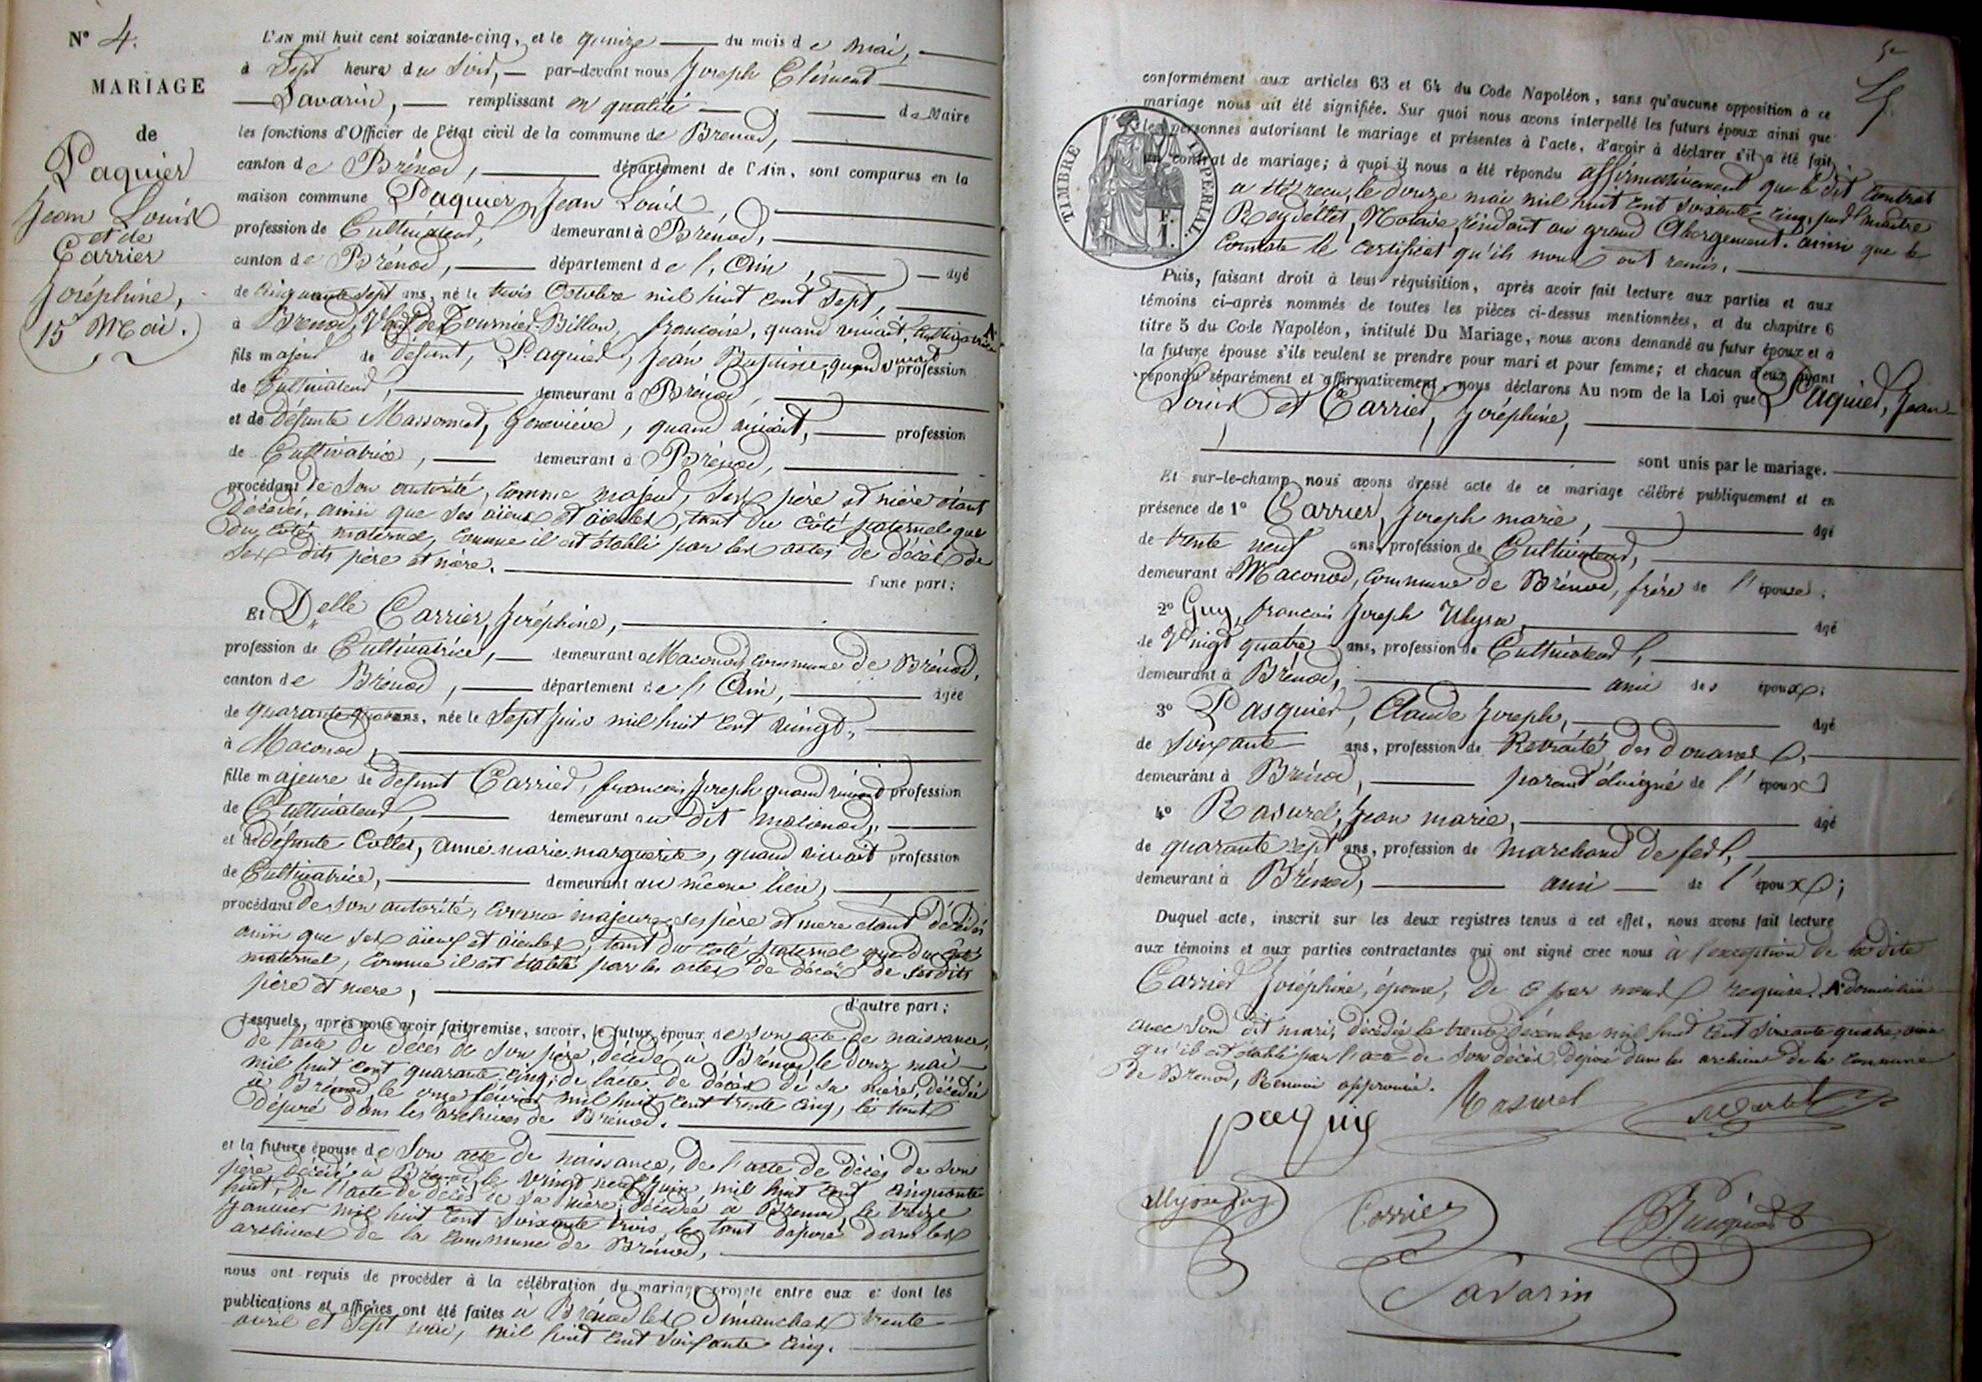 N° 4.
MARIAGE
de
Paquier
Jean Louis
et de
Carrier
Joséphine,
15 Mai.
L'AN mil huit cent soixante-cinq, et le quinze du mois de mai,
à Sept heures du Soir, par-devant nous Joseph Clément
Savarin, remplissant en qualité de Maire
les fonctions d'Officier de l'état civil de la commune de Brénod,
canton de Brénod, département de l'Ain, sont comparus en la
maison commune Paquier, Jean Louis
profession de Cultivateur, demeurant à Brénod,
canton de Brénod, département de l'Ain, âgé
de cinquante sept ans, né le trois Octobre mil huit cent Sept,
à Brénod, Veuf de Tournier-Billon, françoise, quand vivait, Cultivatrice
fils majeur de défunt, Paquier, Jean Baptiste, quand vivait profession
de Cultivateur, demeurant à Brénod,
et de défunte Massonnet, Geneviève, quand vivait, profession
de Cultivatrice, demeurant à Brénod,
procédant de Son autorité, comme majeur, Ses père et mère étant
décédés, ainsi que Ses aïeux et aïeules, tant du côté paternel que
du côté maternel, comme il est établi par les actes de décès de
Ses dits père et mère. d'une part;
Et Delle Carrier, Joséphine,
profession de Cultivatrice, demeurant à Maconod, commune de Brénod,
canton de Brénod, département de l'Ain, âgée
de quarante ans, née le Sept Juin mil huit cent vingt,
à Maconod,
fille majeure de défunt Carrier, françois Joseph quand vivait profession
de Cultivateur, demeurant au dit Maconod,
et de défunte Collet, anne marie marguerite, quand vivait profession
de Cultivatrice, demeurant au même lieu,
procédant de Son autorité, comme majeure, ses père et mère étant décédés
ainsi que Ses aïeux et aïeules, tant du coté paternel que du côté
maternel, comme il est établi par les actes de décès de Sesdits
père et mere, d'autre part;
Lesquels, après nous avoir fait remise, savoir, le futur époux de Son acte de naissance,
de l'acte de décès de Son père, décédé à Brénod le douze mai
mil huit cent quarante cinq; de l'acte de décès de Sa mère, décédée
à Brénod le onze février mil huit cent trente cinq, le tout
déposé dans les archives de Brénod.
et la future épouse de Son acte de naissance, de l'acte de décès de Son
père, décédé à Brénod le vingt neuf Juin mil huit cent cinquante
huit, de l'acte de décès de Sa mère, décédée à Brénod le treize
Janvier mil huit cent Soixante trois, le tout déposé dans les
archives de la commune de Brénod,
nous ont requis de procéder à la célébration du mariage projeté entre eux et dont les
publications et affiches ont été faites à Brénod les Dimanches trente
avril et Sept mai, mil huit cent Soixante cinq.
conformément aux articles 63 et 64 du Code Napoléon, sans qu'aucune opposition à ce
mariage nous ait été signifiée. Sur quoi nous avons interpellé les futurs époux ainsi que
les personnes autorisant le mariage et présentes à l'acte, d'avoir à déclarer s'il a été fait
un contrat de mariage; à quoi il nous a été répondu affirmativement que le dit Contrat
a été reçu, le douze mai mil huit cent soixante cinq, par Maître
Reydellet, Notaire résidant au grand Abergement, ainsi que le
Constate le Certificat qu'ils nous ont remis.
TIMBRE IMPERIAL.
1 F.
Puis, faisant droit à leur réquisition, après avoir fait lecture aux parties et aux
témoins ci-après nommés de toutes les pièces ci-dessus mentionnées, et du chapitre 6
titre 5 du Code Napoléon, intitulé Du Mariage, nous avons demandé au futur époux et à
la future épouse s'ils veulent se prendre pour mari et pour femme; et chacun d'eux ayant
répondu séparément et affirmativement, nous déclarons Au nom de la Loi que Paquier, Jean
Louis et Carrier, Joséphine,
sont unis par le mariage.
Et sur-le-champ nous avons dressé acte de ce mariage célébré publiquement et en
présence de 1° Carrier, Joseph marie, âgé
de trente neuf ans, profession de Cultivateur,
demeurant à Maconod, commune de Brénod, frère de l'épouse;
2° Guy, françois Joseph Ulysse, âgé
de Vingt quatre ans, profession de Cultivateur,
demeurant à Brénod, ami des époux;
3° Pasquier, Claude Joseph, âgé
de Soixante ans, profession de Retraité des douanes,
demeurant à Brénod, parent éloigné de l'époux
4° Rasurel, Jean marie, âgé
de quarante sept ans, profession de marchand de fer,
demeurant à Brénod, ami de l'époux;
Duquel acte, inscrit sur les deux registres tenus à cet effet, nous avons fait lecture
aux témoins et aux parties contractantes qui ont signé avec nous à l'exception de la dite
Carrier Joséphine, épouse, de ce par nous requise. domiciliée
avec Son dit mari, décédée le trente décembre mil huit cent soixante quatre, ainsi
qu'il est établi par l'acte de Son décès, déposé dans les archives de la commune
de Brénod, Renvoi approuvé.
paquié Rasurel
Ulysse Guy Carrier
Savarin